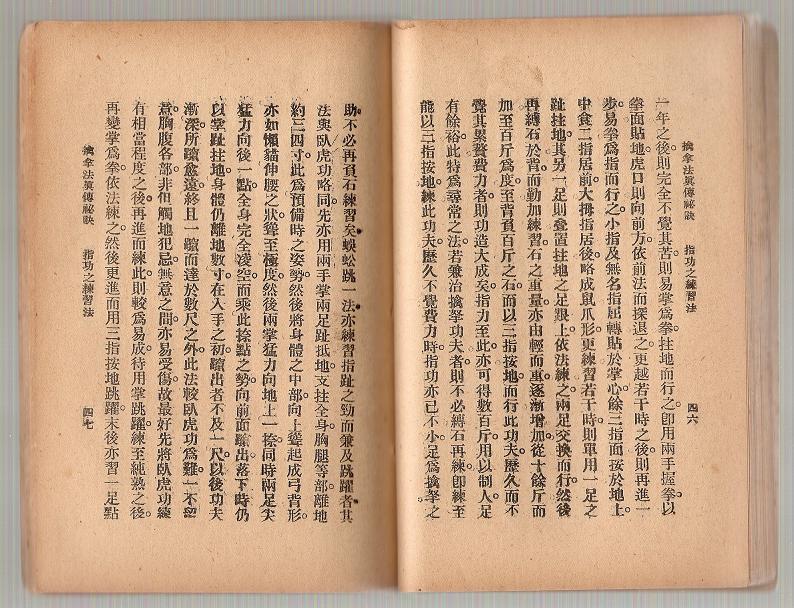 擒拿法眞傳祕訣　指功之練習法　四六
一年之後。則完全不覺其苦。則易掌爲拳。拄地而行之。卽用兩手握拳。以
拳面貼地。虎口則向前方。依前法而探退之。更越若干時之後。則再進一
步。易拳爲指而行之。小指及無名指屈轉貼於掌心。餘三指面按於地上。
中食二指居前。大拇指居後。略成鼠爪形。更練習若干時。則單用一足之
趾拄地。其另一足則疊置拄地之足踝上。依法練之。兩足交換而行。然後
再縛石於背。而勤加練習。石之重量。亦由輕而重。逐漸增加。從十餘斤而
加至百斤爲度。至背負百斤之石。而以三指按地而行。此功夫歷久而不
覺其累贅費力者。則功造大成矣。指力至此。亦可得數百斤。用以制人。足
有餘裕。此特爲尋常之法。若兼治擒拏功夫者。則不必縛石再練。卽練至
能以三指按地。練此功夫。歷久不覺費力時。指功亦已不小。足爲擒拏之
助。不必再負石練習矣。蜈蚣跳一法。亦練習指趾之勁。而兼及跳躍者。其
法與臥虎功略同。先亦用兩手掌兩足趾抵地。支拄全身。胸腿等部。離地
約三四寸。此爲預備時之姿勢。然後將身體之中部。向上聳起成弓背形。
亦如懶貓伸腰之狀。聳至極度。然後兩掌猛力向地上一捺。同時兩足尖
猛力向後一點。全身完全凌空。而乘此捺點之勢。向前面躥出。落下時仍
以掌趾拄地。身體仍離地數寸。在入手之初。躥出者不及一尺。以後功夫
漸深。所躥愈遠。終且一躥而達於數尺之外。此法較臥虎功爲難。一不留
意。胸腹各部。非但觸地犯忌。無意之間。亦易受傷。故最好先將臥虎功練
有相當程度之後。再進而練此。則較爲易成。待用掌跳躍練至純熟之後。
再變掌爲拳。依法練之。然後更進而用三指按地跳躍。末後亦習一足點
擒拿法眞傳祕訣　指功之練習法　四七